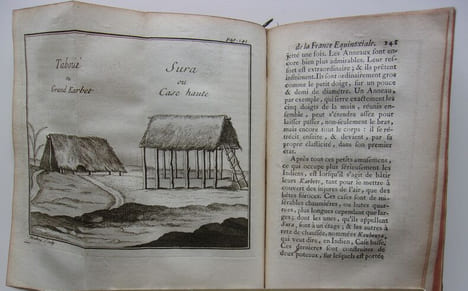 Pag. 141.
Taboüi
ou
Grand Karbet
Sura
ou
Case haute
de la France Equinoxiale. 141
jette une fois. Les Anneaux sont en-
core bien plus admirables. Leur res-
sort est extraordinaire ; & ils prêtent
infiniment. Ils sont ordinairement gros
comme le petit doigt, sur un pouce
& demi de diamétre. Un Anneau,
par exemple, qui serre exactement les
cinq doigts de la main, réunis en-
semble, peut s'étendre assez pour
laisser passer, non-seulement le bras,
mais encore tout le corps : il se ré-
trécit ensuite, & devient, par sa
propre elasticité, dans son premier
état.
Après tout ces petits amusemens,
ce qui occupe plus sérieusement les
Indiens, est lorsqu'il s'agit de bâtir
leurs Karbets, tant pour se mettre à
couvert des injures de l'air, que des
bêtes féroces. Ces cases sont de mi-
sérables chaumiéres, ou hutes quar-
rées, plus longues cependant que lar-
ges ; dont les unes, qu'ils appellent
Sura, sont à un étage ; & les autres à
rez de chaussée, nommées
qui veut dire, en Indien, Case basse.
Ces dernieres sont construites de
deux poteaux, sur lesquels est portée